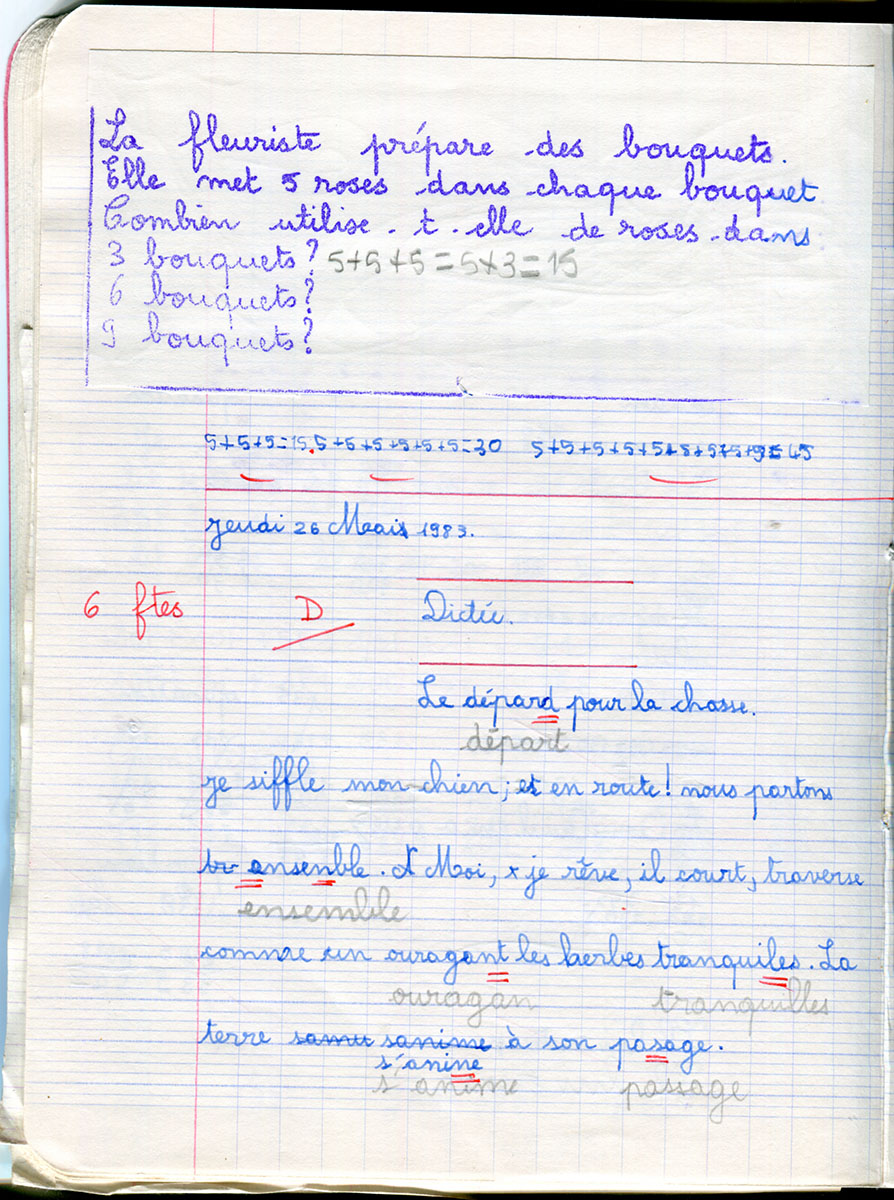 La fleuriste prépare des bouquets.
Elle met 5 roses dans chaque bouquet
Combien utilise-t-elle de roses dans
3 bouquets? 5+5+5=5×3=15
6 bouquets?
9 bouquets?
5+5+5=15. 5+5+5+5+5+5=30 5+5+5+5+5+5+5+5+5=45
jeudi 26 Mai 1983.
6 ftes D Dictée.
Le dépard pour la chasse.
départ
je siffle mon chien; et en route! nous partons
ansenble. Moi, je rêve, il court, traverse
ensemble
comme un ouragant les herbes tranquiles. La
ouragan tranquilles
terre samu sanime à son pasage.
s'anine
s'anime passage